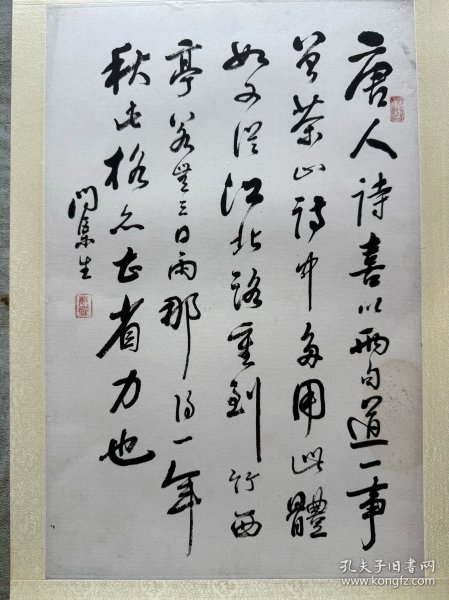 唐人詩喜以兩句道一事
曾茶山詩中多用此體
如又從江北路重到竹西
亭若無三日雨那得一年
秋此格亦甚省力也
閒集生
孔夫子旧书网
www.kongfz.com